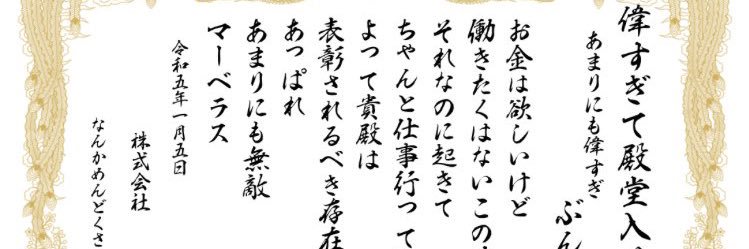 偉すぎて殿堂入
あまりにも偉すぎ
ぶん
お金は欲しいけど
働きたくはないこの
それなのに起きて
ちゃんと仕事行って
よって貴殿は
表彰されるべき存在
あっぱれ
あまりにも無敵
マーベラス
令和五年一月五日
株式会社
なんかめんどくさ